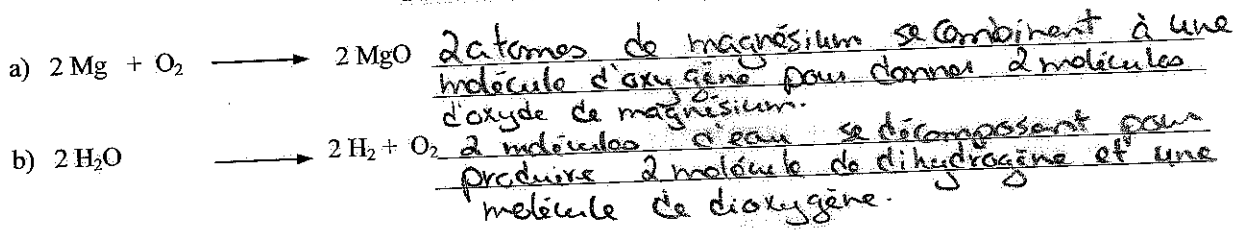 a) 2 Mg + O₂ ⟶ 2 MgO 2 atomes de magnésium se combinent à une
molécule d'oxygène pour donner 2 molécules
d'oxyde de magnésium.
b) 2 H₂O ⟶ 2 H₂ + O₂ 2 molécules d'eau se décomposent pour
produire 2 molécule de dihydrogène et une
molécule de dioxygène.